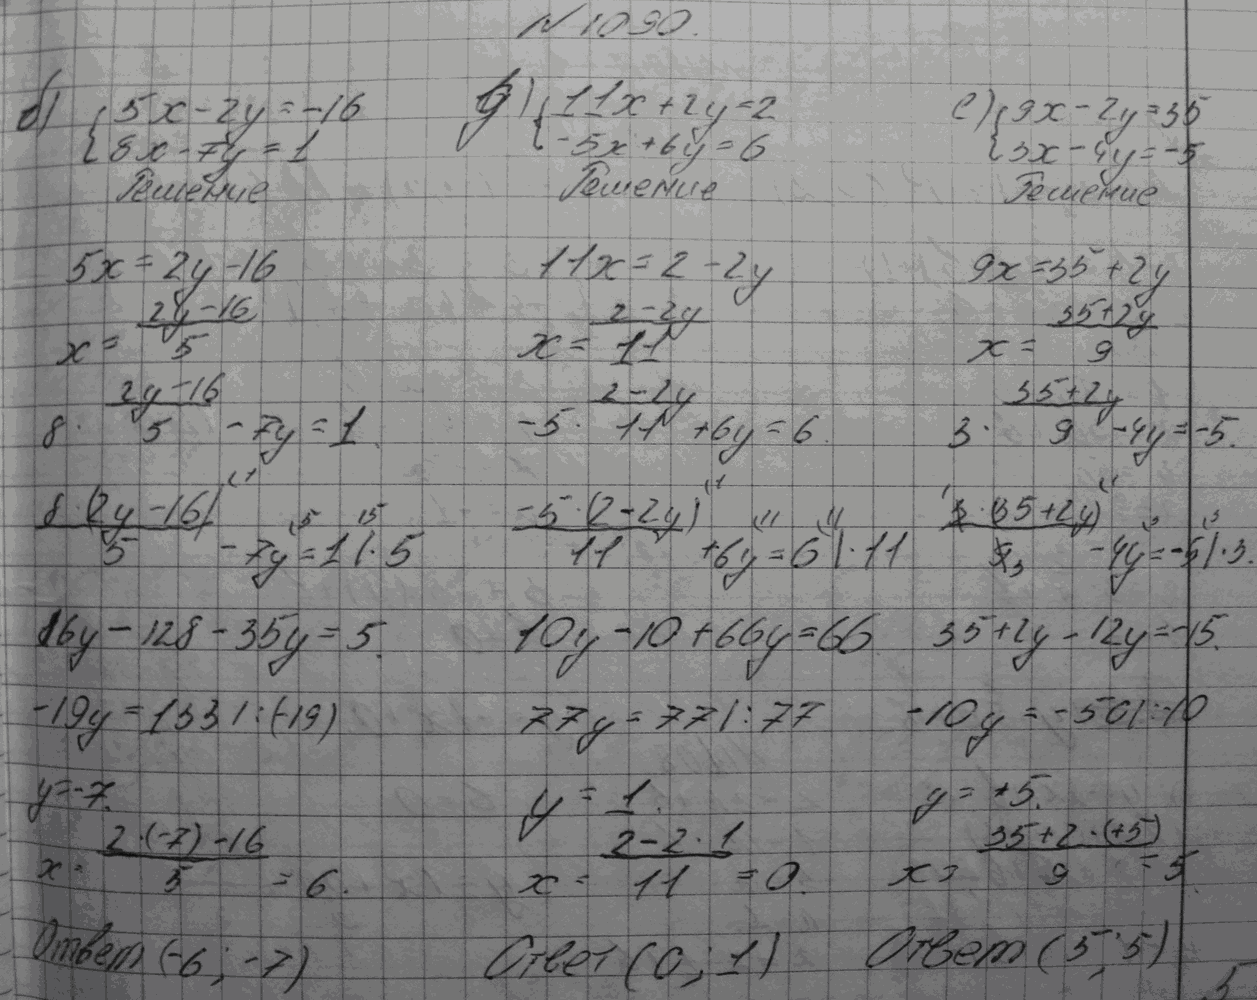 № 1090.
б) { 5x - 2y = -16
8x - 7y = 1
Решение
5x = 2y - 16
x = (2y - 16)/5
8 · (2y - 16)/5 - 7y = 1.
8 · (2y - 16)/5 - 7y = 1 | · 5
16y - 128 - 35y = 5.
-19y = 133 | : (-19)
y = -7.
x = (2 · (-7) - 16)/5 = 6.
Ответ (-6 ; -7)
{ 11x + 2y = 2
-5x + 6y = 6
Решение
11x = 2 - 2y
x = (2 - 2y)/11
-5 · (2 - 2y)/11 + 6y = 6.
-5 · (2 - 2y)/11 + 6y = 6 | · 11
10y - 10 + 66y = 66
77y = 77 | : 77
y = 1.
x = (2 - 2 · 1)/11 = 0.
Ответ (0 ; 1)
е) { 9x - 2y = 35
3x - 4y = -5
Решение
9x = 35 + 2y
x = (35 + 2y)/9
3 · (35 + 2y)/9 - 4y = -5.
3 · (35 + 2y)/9 3 - 4y = -5 | · 3.
35 + 2y - 12y = -15.
-10y = -50 | : -10
y = +5.
x = (35 + 2 · (+5))/9 = 5
Ответ (5 ; 5)
5